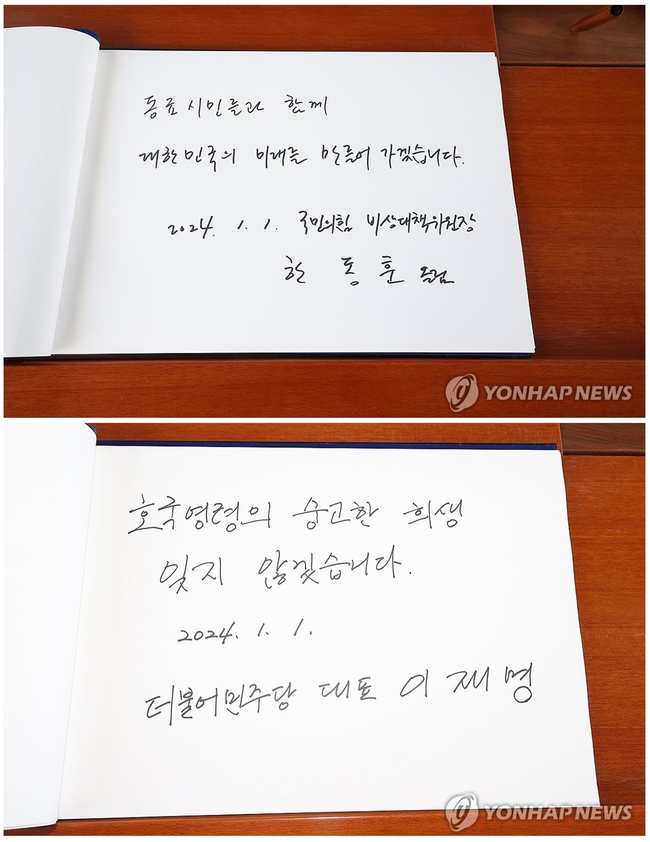 동료시민들과 함께
대한민국의 미래를 만들어 가겠습니다.
2024. 1. 1. 국민의힘 비상대책위원장
한 동 훈 드림
YONHAP NEWS
호국영령의 숭고한 희생
잊지 않겠습니다.
2024. 1. 1.
더불어민주당 대표 이 재 명
YONHAP NEWS